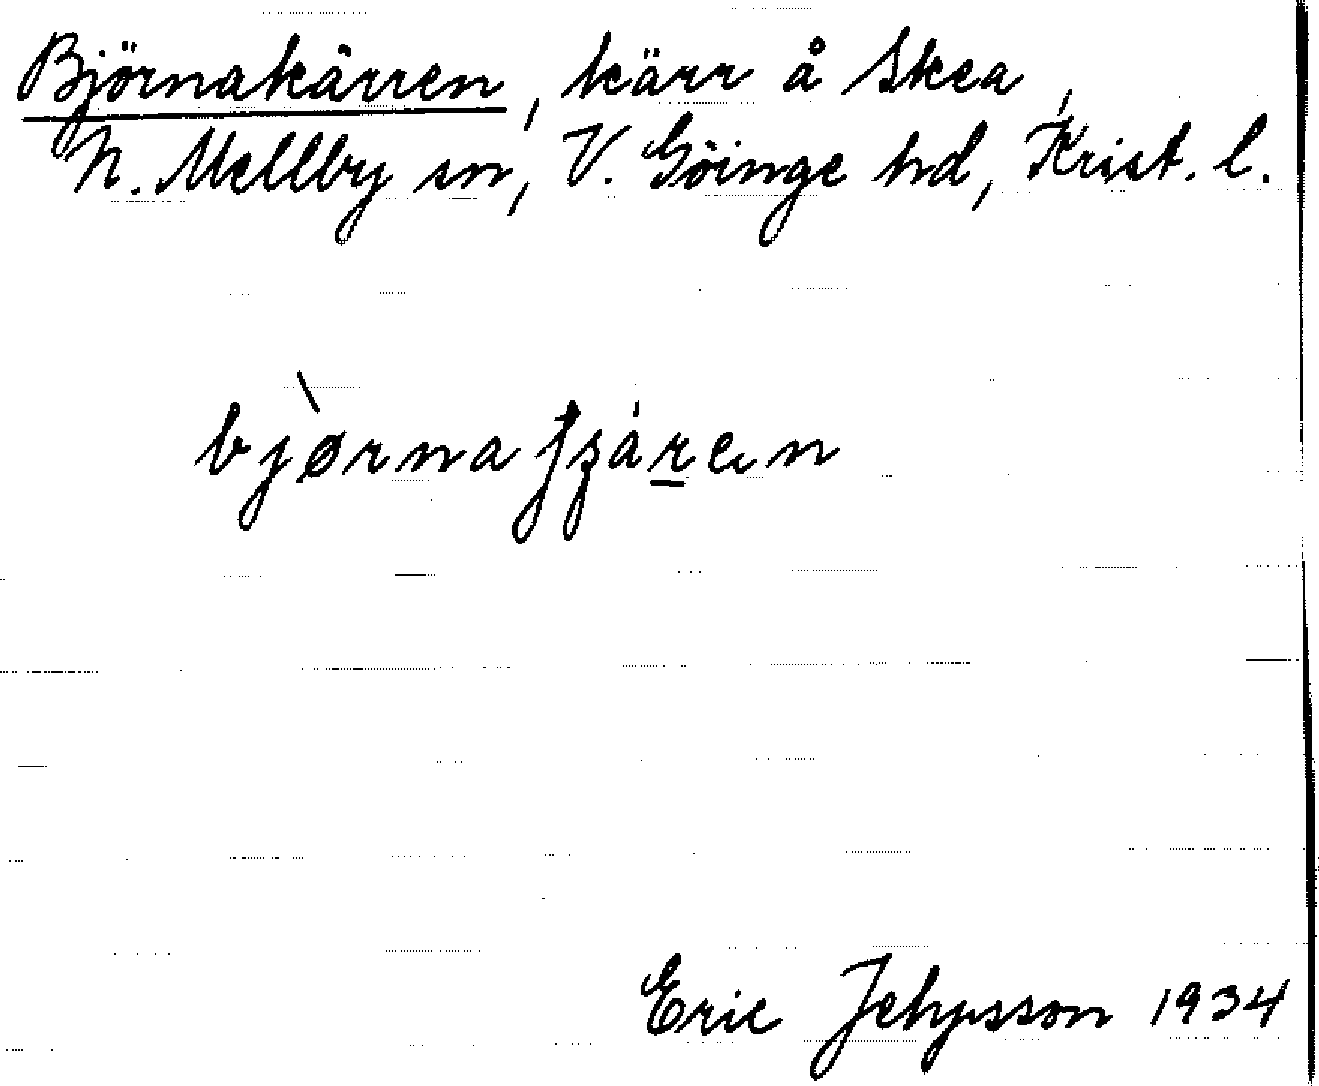 Björnakärren, kärr å Skea,
N. Mellby sn, V. Göinge hd, Krist. l.
bjø̀rnaʃʒáṟen
Eric Jehpsson 1934